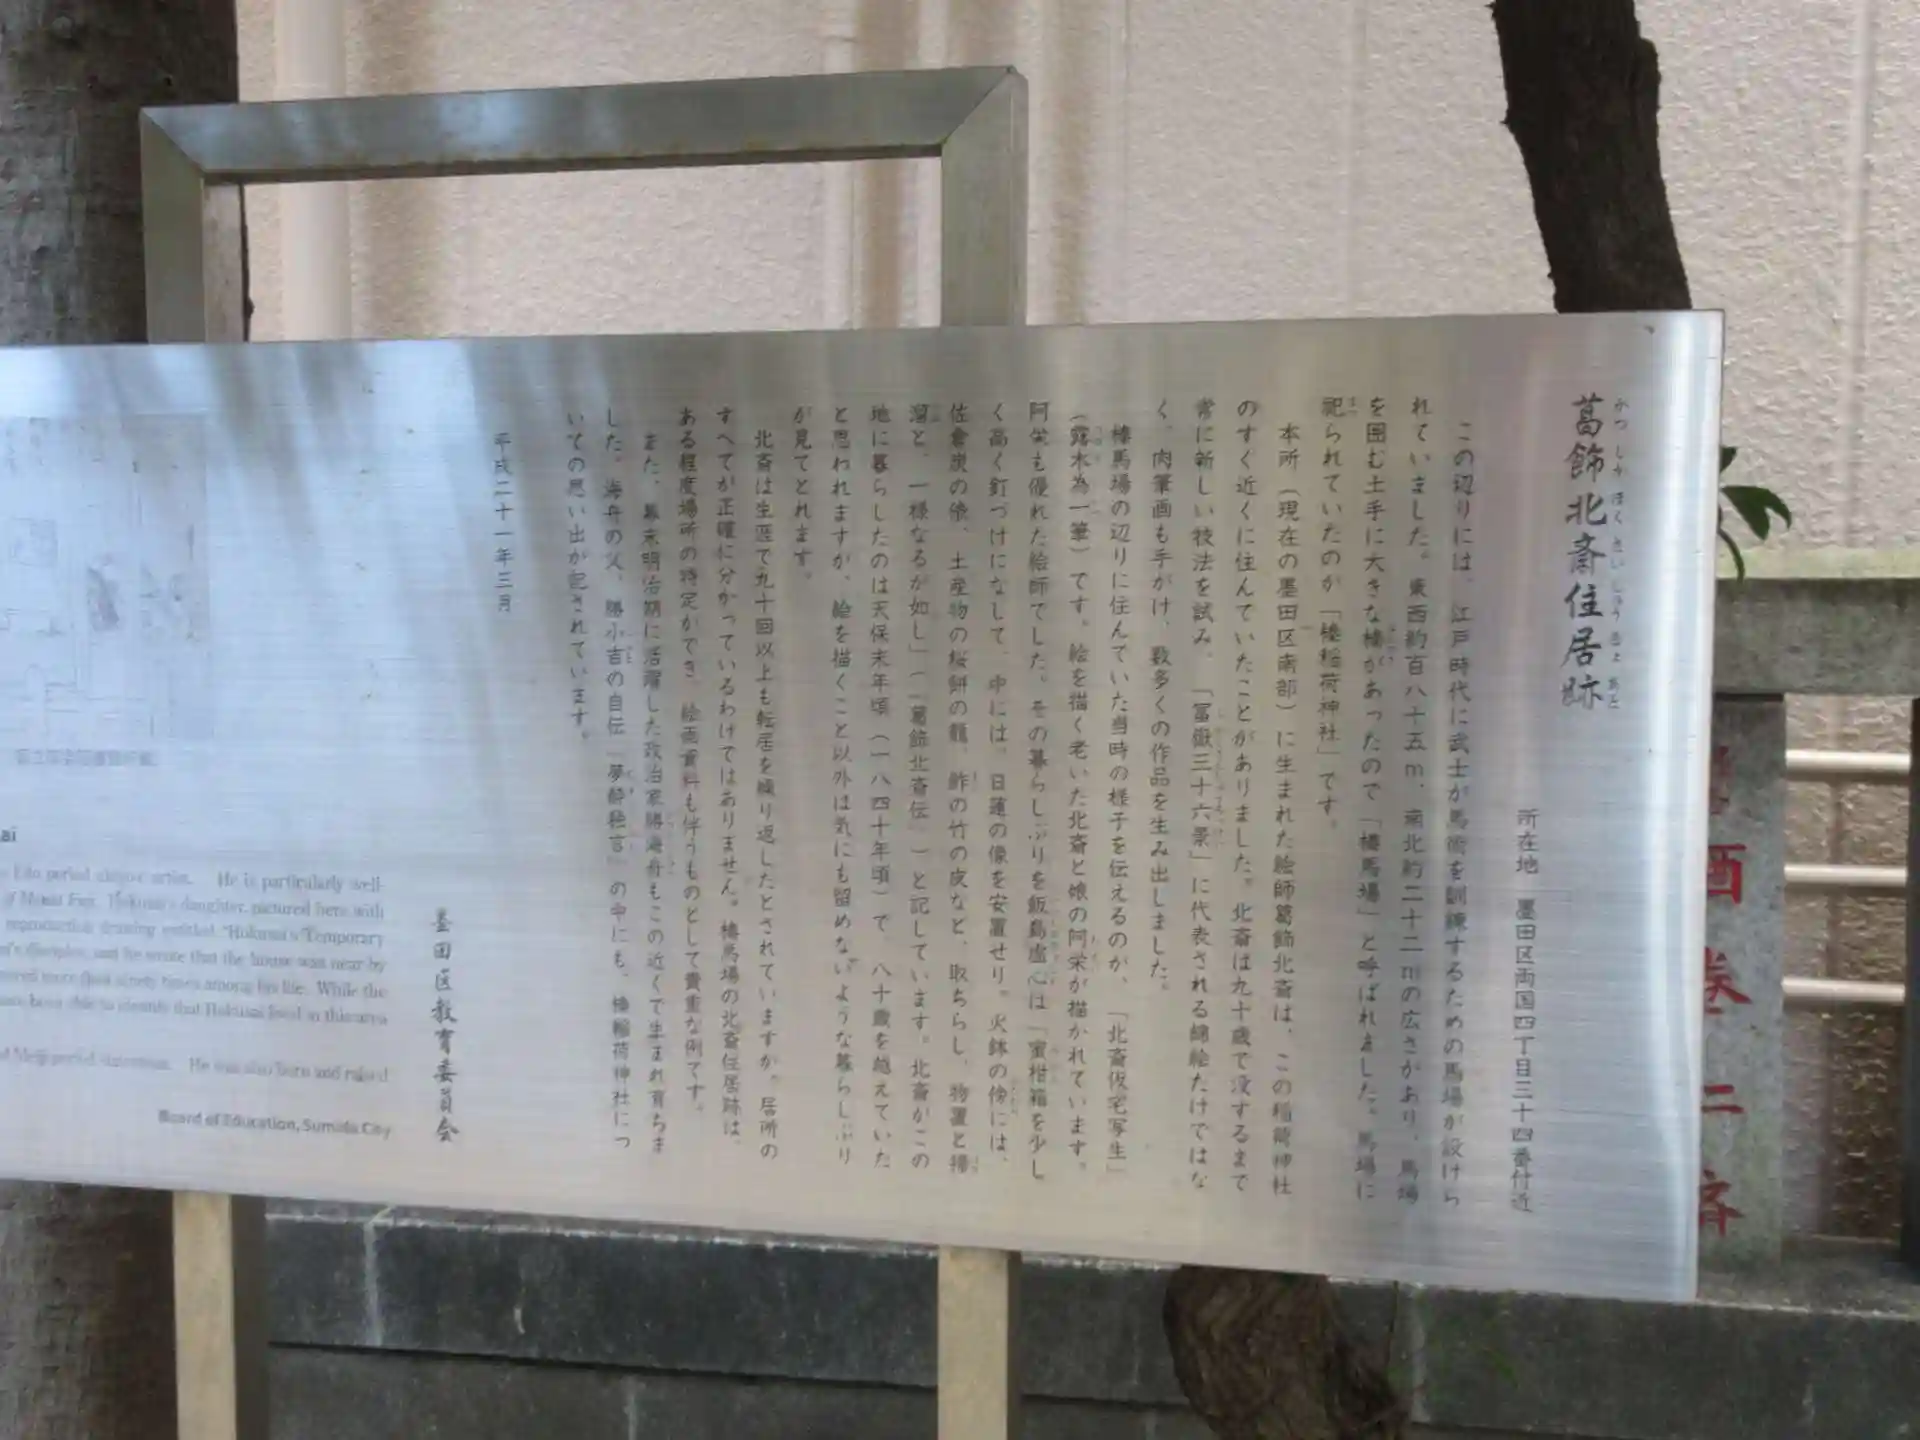 葛飾北斎住居跡
かつしか ほくさい じゅうきょ あと
所在地 墨田区両国四丁目三十四番付近
この辺りには、江戸時代に武士が馬術を訓練するための馬場が設けら
れていました。東西約百八十五m、南北約二十二mの広さがあり、馬場
を囲む土手に大きな榛があったので「榛馬場」と呼ばれました。馬場に
祀られていたのが「榛稲荷神社」です。
本所(現在の墨田区南部)に生まれた絵師葛飾北斎は、この稲荷神社
のすぐ近くに住んでいたことがありました。北斎は九十歳で没するまで
常に新しい技法を試み、「冨嶽三十六景」に代表される錦絵だけではな
く、肉筆画も手がけ、数多くの作品を生み出しました。
榛馬場の辺りに住んでいた当時の様子を伝えるのが、「北斎仮宅写生」
(露木為一筆)です。絵を描く老いた北斎と娘の阿栄が描かれています。
阿栄も優れた絵師でした。その暮らしぶりを飯島虚心は「蜜柑箱を少し
く高く釘づけになして、中には、日蓮の像を安置せり。火鉢の傍には、
佐倉炭の俵、土産物の桜餅の籠、鮓の竹の皮など、取ちらし、物置と掃
溜と、一様なるが如し」(「葛飾北斎伝」)と記しています。北斎がこの
地に暮らしたのは天保末年頃(一八四十年頃)で、八十歳を越えていた
と思われますが、絵を描くこと以外は気にも留めないような暮らしぶり
が見てとれます。
北斎は生涯で九十回以上も転居を繰り返したとされていますが、居所の
すべてが正確に分かっているわけではありません。榛馬場の北斎住居跡は、
ある程度場所の特定ができ、絵画資料も伴うものとして貴重な例です。
また、幕末明治期に活躍した政治家勝海舟もこの近くで生まれ育ちま
した。海舟の父、勝小吉の自伝「夢酔独言」の中にも、榛稲荷神社につ
いての思い出が記されています。
平成二十一年三月
墨田区教育委員会
ai
Edo period ukiyo-e artist. He is particularly well-
of Mount Fuji. Hokusai's daughter, pictured here with
reproduction drawing entitled "Hokusai's Temporary
disciples, and he wrote that the house was near by
moved more than ninety times among his life. While the
have been able to identify that Hokusai lived in this area
Meiji period statesman. He was also born and raised
Board of Education, Sumida City